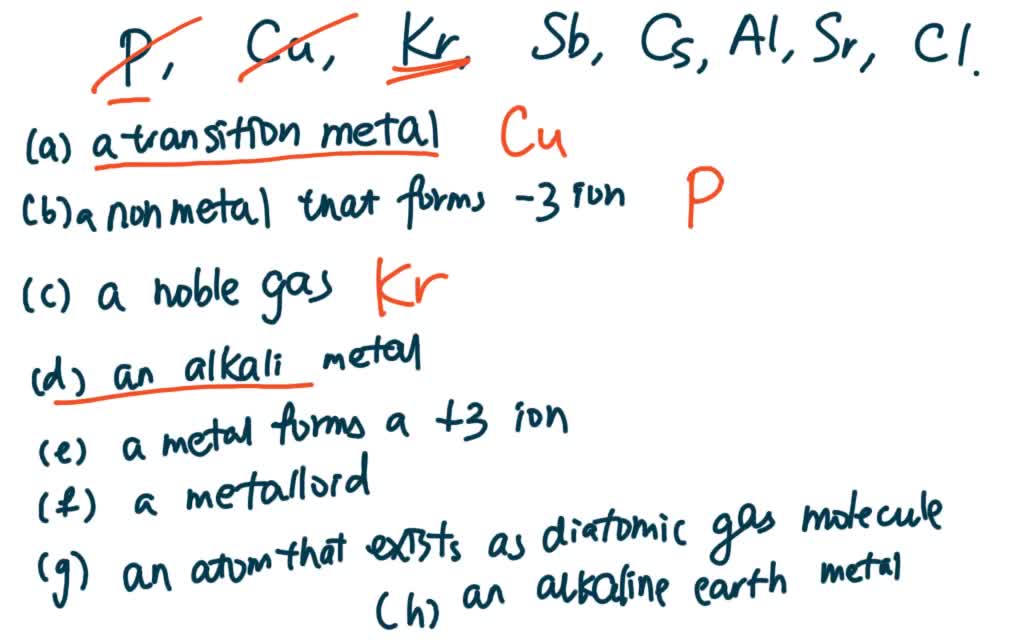 P, Cu, Kr, Sb, Cs, Al, Sr, Cl.
(a) a transition metal Cu
(b) a nonmetal that forms -3 ion P
(c) a noble gas Kr
(d) an alkali metal
(e) a metal forms a +3 ion
(f) a metalloid
(g) an atom that exists as diatomic gas molecule
(h) an alkaline earth metal